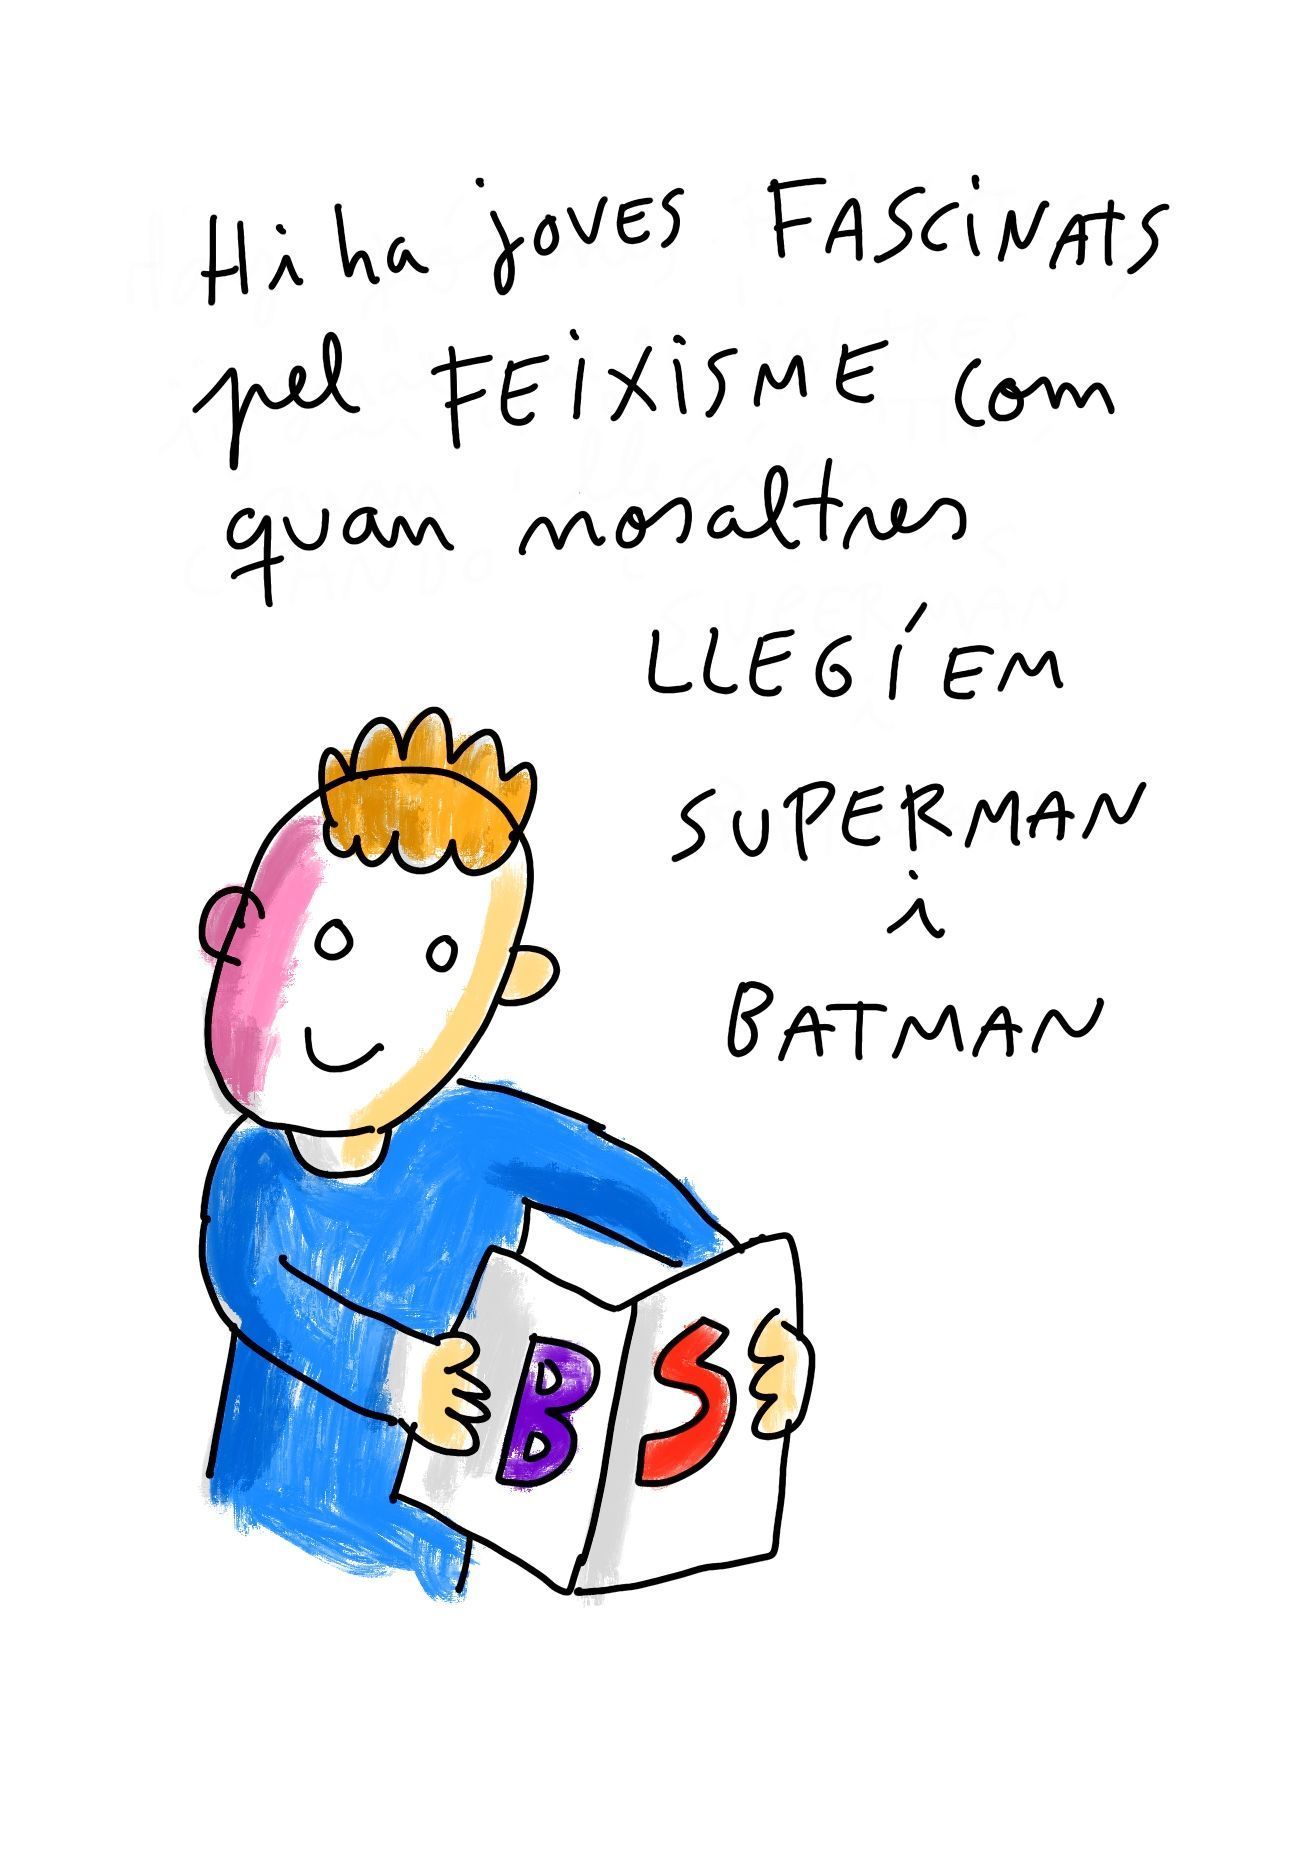 Hi ha joves FASCiNATS
pel FEiXiSME com
quan nosaltres
LLEGÍEM
SUPERMAN
i
BATMAN
B S